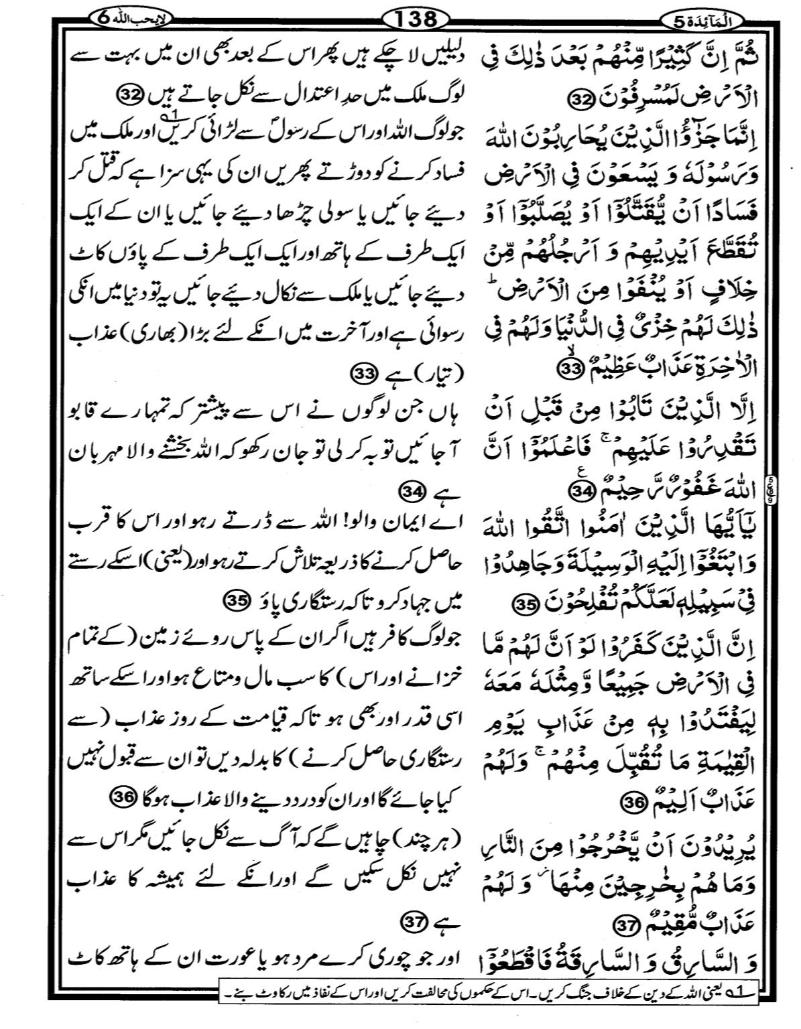 الْمَآئِدَة 5
138
لایحب الله 6
ثُمَّ اِنَّ كَثِيْرًا مِّنْهُمْ بَعْدَ ذٰلِكَ فِی
الْاَرْضِ لَمُسْرِفُوْنَ 32
اِنَّمَا جَزٰٓؤُا الَّذِيْنَ يُحَارِبُوْنَ اللّٰهَ
وَرَسُوْلَهٗ وَ يَسْعَوْنَ فِی الْاَرْضِ
فَسَادًا اَنْ يُّقَتَّلُوْٓا اَوْ يُصَلَّبُوْٓا اَوْ
تُقَطَّعَ اَيْدِيْهِمْ وَ اَرْجُلُهُمْ مِّنْ
خِلَافٍ اَوْ يُنْفَوْا مِنَ الْاَرْضِ ؕ
ذٰلِكَ لَهُمْ خِزْیٌ فِی الدُّنْيَا وَلَهُمْ فِی
الْاٰخِرَةِ عَذَابٌ عَظِيْمٌ ۙ 33
اِلَّا الَّذِيْنَ تَابُوْا مِنْ قَبْلِ اَنْ
تَقْدِرُوْا عَلَيْهِمْ ۚ فَاعْلَمُوْٓا اَنَّ
اللّٰهَ غَفُوْرٌ رَّحِيْمٌ 34 ع
يٰٓاَيُّهَا الَّذِيْنَ اٰمَنُوا اتَّقُوا اللّٰهَ
وَابْتَغُوْٓا اِلَيْهِ الْوَسِيْلَةَ وَجَاهِدُوْا
فِیْ سَبِيْلِهٖ لَعَلَّكُمْ تُفْلِحُوْنَ 35
اِنَّ الَّذِيْنَ كَفَرُوْا لَوْ اَنَّ لَهُمْ مَّا
فِی الْاَرْضِ جَمِيْعًا وَّمِثْلَهٗ مَعَهٗ
لِيَفْتَدُوْا بِهٖ مِنْ عَذَابِ يَوْمِ
الْقِيٰمَةِ مَا تُقُبِّلَ مِنْهُمْ ۚ وَلَهُمْ
عَذَابٌ اَلِيْمٌ 36
يُرِيْدُوْنَ اَنْ يَّخْرُجُوْا مِنَ النَّارِ
وَمَا هُمْ بِخٰرِجِيْنَ مِنْهَا ۫ وَلَهُمْ
عَذَابٌ مُّقِيْمٌ 37
وَ السَّارِقُ وَ السَّارِقَةُ فَاقْطَعُوْٓا
دلیلیں لا چکے ہیں پھر اس کے بعد بھی ان میں بہت سے
لوگ ملک میں حدِ اعتدال سے نکل جاتے ہیں 32
جو لوگ اللہ اور اس کے رسولؐ سے لڑائی کریں 1 اور ملک میں
فساد کرنے کو دوڑتے پھریں ان کی یہی سزا ہے کہ قتل کر
دیئے جائیں یا سولی چڑھا دیئے جائیں یا ان کے ایک
ایک طرف کے ہاتھ اور ایک ایک طرف کے پاؤں کاٹ
دیئے جائیں یا ملک سے نکال دیئے جائیں یہ تو دنیا میں انکی
رسوائی ہے اور آخرت میں انکے لئے بڑا (بھاری) عذاب
(تیار) ہے 33
ہاں جن لوگوں نے اس سے پیشتر کہ تمہارے قابو
آ جائیں توبہ کر لی تو جان رکھو کہ اللہ بخشنے والا مہربان
ہے 34
اے ایمان والو! اللہ سے ڈرتے رہو اور اس کا قرب
حاصل کرنے کا ذریعہ تلاش کرتے رہو اور (یعنی) اسکے رستے
میں جہاد کرو تاکہ رستگاری پاؤ 35
جو لوگ کافر ہیں اگر ان کے پاس روئے زمین (کے تمام
خزانے اور اس) کا سب مال ومتاع ہو اور اسکے ساتھ
اسی قدر اور بھی ہو تاکہ قیامت کے روز عذاب (سے
رستگاری حاصل کرنے) کا بدلہ دیں تو ان سے قبول نہیں
کیا جائے گا اور ان کو درد دینے والا عذاب ہوگا 36
(ہر چند) چاہیں گے کہ آگ سے نکل جائیں مگر اس سے
نہیں نکل سکیں گے اور انکے لئے ہمیشہ کا عذاب
ہے 37
اور جو چوری کرے مرد ہو یا عورت ان کے ہاتھ کاٹ
1 یعنی اللہ کے دین کے خلاف جنگ کریں۔ اس کے حکموں کی مخالفت کریں اور اس کے نفاذ میں رکاوٹ بنے۔